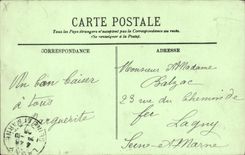 CARTE POSTALE
Tous les Pays étrangers n'acceptent pas la Correspondance au recto.
CORRESPONDANCE
ADRESSE
Un bon baiser
à tous
Marguerite
Monsieur et Madame
Balzac
23 rue du Chemin de
fer
Lagny
Seine et Marne